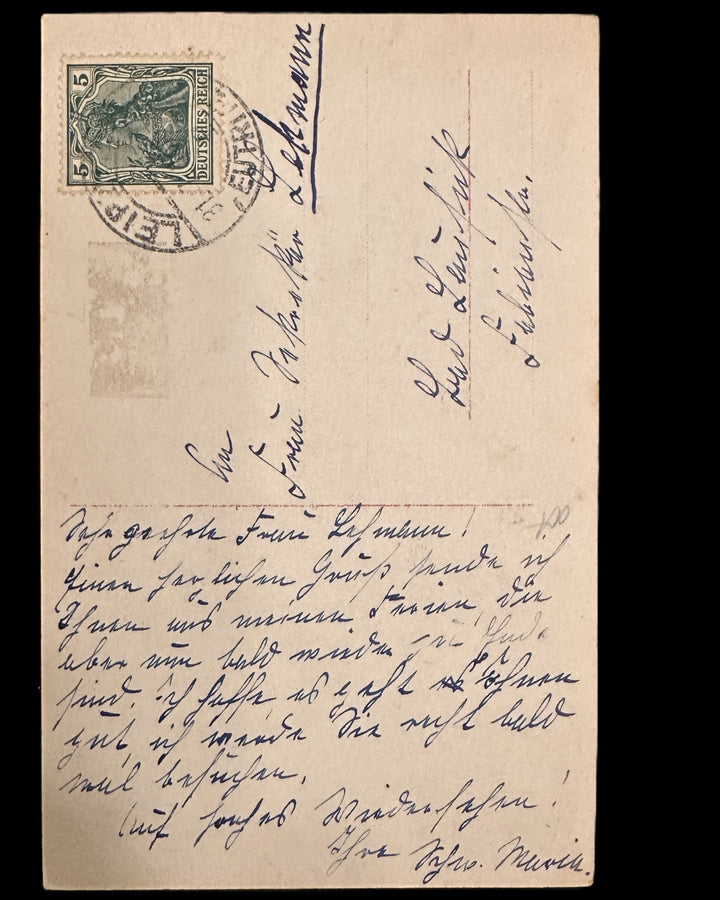 5 5
DEUTSCHES REICH
LEIP
An
Frau Sekretär Lehmann
Bad Lausick
Fabianstr.
Sehr geehrte Frau Lehmann!
Einen herzlichen Gruß sende ich
Ihnen aus meinen Ferien, die
aber nun bald wieder zu Ende
sind. Ich hoffe, es geht Ihnen
gut, ich werde Sie recht bald
mal besuchen.
Auf frohes Wiedersehen!
Ihre Schw. Maria.